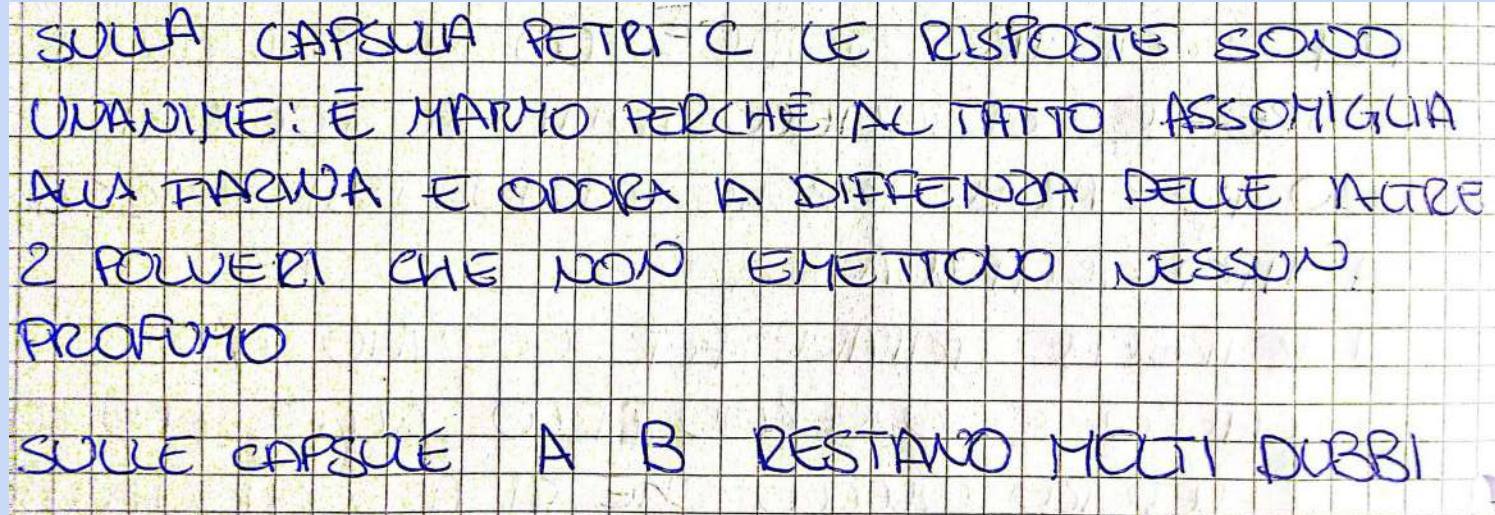 SULLA CAPSULA PETRI C LE RISPOSTE SONO
UNANIME: È MARMO PERCHÈ AL TATTO ASSOMIGLIA
ALLA FARINA E ODORA A DIFFENZA DELLE ALTRE
2 POLVERI CHE NON EMETTONO NESSUN
PROFUMO
SULLE CAPSULE A B RESTANO MOLTI DUBBI